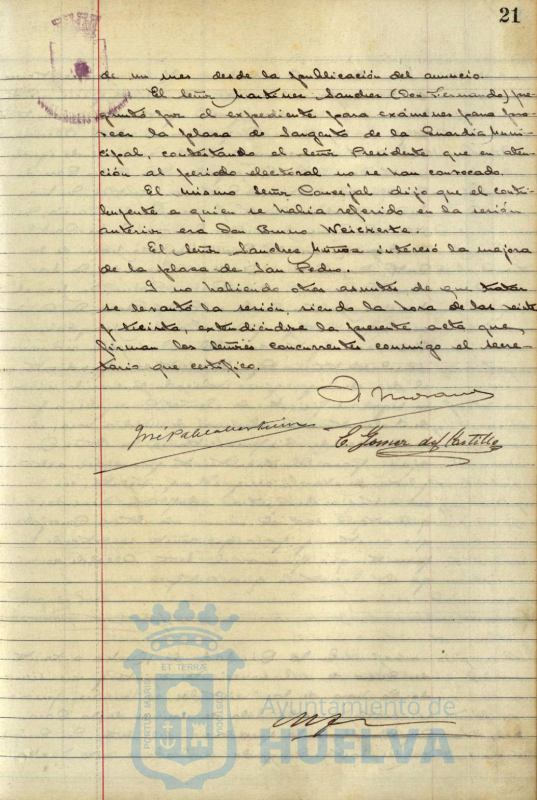 21
de un mes desde la publicación del anuncio.
El Señor Martinez Sanchez (Don Fernando) pre
guntó por el expediente para exámenes para pro
veer la plaza de Sargento de la Guardia Muni
cipal, contestando el Señor Presidente que en aten
ción al período electoral no se han convocado.
El mismo Señor Concejal dijo que el contri
buyente a quien se habia referido en la sesión
anterior era Don Bruno
El Señor Sanchez Muñoz interesó la mejora
de la plaza de San Pedro.
Y no habiendo otros asuntos de que tratar
se levantó la sesión, siendo la hora de las veinte
y treinta, extendiéndose la presente acta que
firman los Señores concurrentes conmigo el Secre
tario que certifico.
E. Gomez del Castillo
ET TERRÆ
PORTUS MARIS
CUSTODIA
Ayuntamiento de
HUELVA